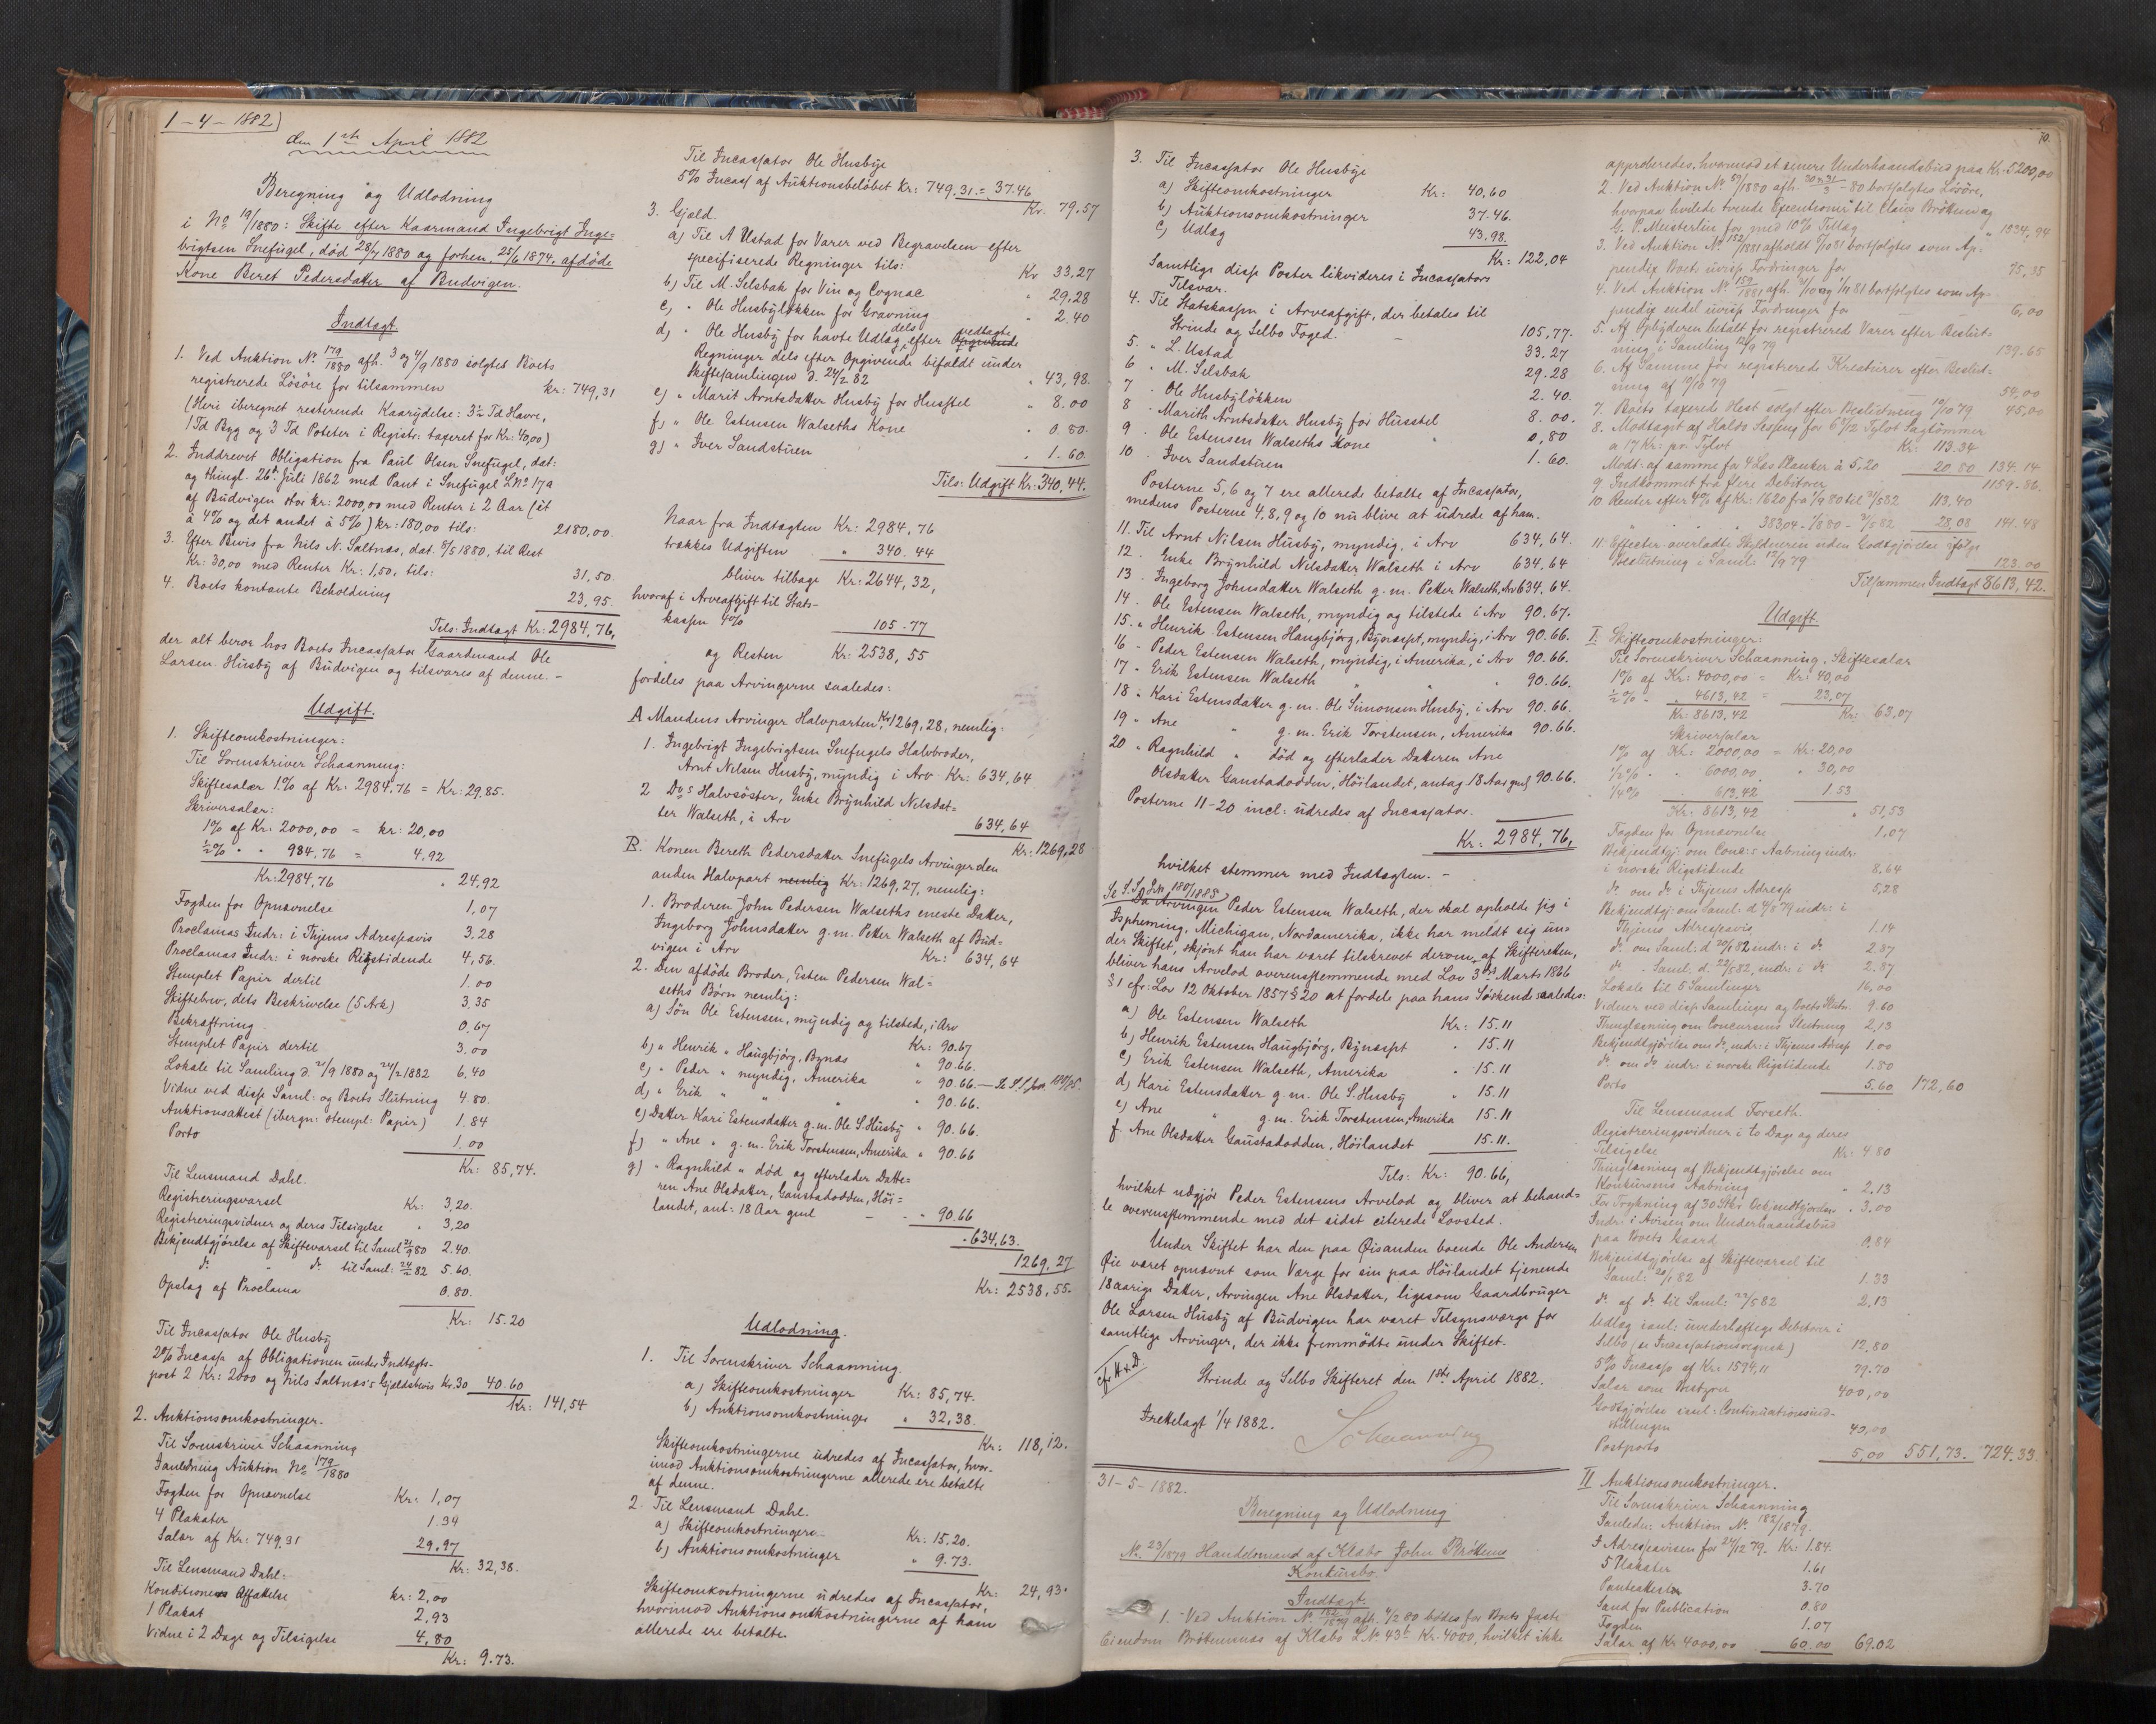 1-4-1882
den 1ste April 1882
Beregning og Udlodning
i No 19/1880: Skifte efter Kaarmand Ingebrigt Inge-
brigtsen Snefugel, død 28/7 1880 og forhen, 25/6 1874, afdöde
Kone Beret Pedersdatter af Budvigen.
Indtægt.
1. Ved Auktion No. 179/1880 afh. 3 og 4/9 1880 solgtes Boets
registrerede Lösöre for tilsammen kr: 749,31
(Heri iberegnet resterende Kaarydelse: 3½ Td Havre,
1 Td Byg og 3 Td Poteter i Registr: taxeret for Kr: 40,00)
2. Inddrevet Obligation fra Paul Olsen Snefugel, dat:
og thingl. 26de Juli 1862 med Pant i Snefugel L No 17a
af Budvigen stor kr: 2000,00 med Renter i 2 Aar (et
à 4% og det andet à 5%) kr: 180,00 tils: 2180,00.
3. Efter Bevis fra Nils N. Saltnæs, dat. 8/5 1880, til Rest
Kr: 30,00 med Renter Kr: 1,50, tils: 31,50.
4. Boets kontante Beholdning 23,95.
Tils: Indtægt Kr: 2984,76,
der alt beror hos Boets Incassator Gaardmand Ole
Larsen Husby af Budvigen og tilsvares af denne. -
Udgift.
1. Skifteomkostninger:
Til Sorenskriver Schaanning:
Skiftesalær 1% af Kr. 2984.76 = Kr: 29,85.
Skriversalær:
1% af Kr. 2000,00 = kr: 20,00
½% " " 984,76 = 4,92
Kr: 2984,76 " 24,92
Fogden for Opnævnelse 1,07
Proclamas Indr: i Thjems Adresseavis 3,28
Proclamas Indr: i norske Rigstidende 4,56
Stemplet Papir dertil 1.00
Skiftebrev, dets Beskrivelse (5 Ark) 3.35
Bekræftning 0,67
Stemplet Papir dertil 3.00
Lokale til Samling d. 21/9 1880 og 24/2 1882 6,40
Vidne ved disse Saml: og Boets Slutning 4,80.
Auktionsattest (ibergn: stempl: Papir) 1.84
Porto 1.00
Kr: 85,74.
Til Lensmand Dahl.
Registreringsvarsel Kr: 3,20.
Registreringsvidner og deres Tilsigelse " 3,20
Bekjendtgjörelse af Skiftevarsel til Saml 21/9 80 2.40.
do " do til Saml: 24/2 82 5.60.
Opslag af Proclama 0.80.
Kr: 15.20
Til Incassator Ole Husby
2% Incasso af Obligationen under Indtægts-
post 2 Kr: 2000 og Nils Saltnæs's Gjeldsbevis Kr. 30 40.60
Kr: 141,54
2. Auktionsomkostninger.
Til Sorenskriver Schaanning
Ianledning Auktion No 179/1880
Fogden for Opnævnelse Kr: 1,07
4 Plakater 1.34
Salær af Kr: 749.31 29,97
Kr: 32,38.
Til Lensmand Dahl:
Konditionens Affattelse kr: 2,00
1 Plakat 2,93
Vidne i 2 Dage og Tilsigelse 4,80
Kr: 9.73.
Til Incassator Ole Husbye
5% Incass af Auktionsbelöbet Kr: 749.31 = 37.46
Kr. 79.57
3. Gjæld.
a) Til A Ustad for Varer ved Begravelsen efter
specifiserede Regninger tils: Kr 33.27
b) Til M. Selsbak for Vin og Cognac " 29.28
c) " Ole Husbylökken for Gravning " 2.40
d) " Ole Husby for havte Udlæg dels efter vedtagte
Regninger dels efter Opgivende bifaldt under
Skiftesamlingen d. 24/2 82 " 43,98.
e) " Marit Arntsdatter Husby for Husstel " 8.00
f) " Ole Estensen Walseths Kone " 0.80.
g) " Iver Sandstuen " 1.60.
Tils: Udgift Kr: 340,44.
Naar fra Indtægten Kr: 2984,76
trækkes Udgiften " 340.44
bliver tilbage Kr: 2644,32,
hvoraf i Arveafgift til Stats-
kassen 4% 105.77
og Resten Kr: 2538,55
fordeles paa Arvingerne saaledes:
A Mandens Arvinger Halvparten Kr 1269,28, nemlig:
1. Ingebrigt Ingebrigtsen Snefugels Halvbroder,
Arnt Nilsen Husby, myndig i Arv Kr: 634,64
2 Ds Halvsöster, Enke Brynhild Nilsdat=
ter Walseth, i Arv 634,64
Kr: 1269,28
B. Konen Bereth Pedersdatter Snefugels Arvinger den
anden Halvpart nemlig Kr: 1269,27, nemlig:
1. Broderen John Pedersen Walseths eneste Datter,
Ingeborg Johnsdatter g.m. Petter Walseth af Bud=
vigen i Arv Kr: 634,64
2. Den afdöde Broder, Esten Pedersen Wal=
seths Börn nemlig:
a) Sön Ole Estensen, myndig og tilstede, i Arv
Kr: 90.67
b) " Henrik " Haugbjörg, Bynæs " 90.66.
c) " Peder " myndig, Amerika " 90.66.
d) " Erik " " " " 90.66.
e) Datter Kari Estensdatter g.m. Ole S. Husby " 90.66.
f) " Ane " g.m. Erik Torstensen, Amerika " 90.66
g) " Ragnhild " död og efterlader Datte=
ren Ane Olsdatter, Gaustadodden, Höi=
landet, ant: 18 Aar gml " 90.66
" 634,63.
1269,27
Kr: 2538,55.
Udlodning.
1. Til Sorenskriver Schaanning
a) Skifteomkostninger Kr: 85,74.
b) Auktionsomkostninger " 32,38.
Kr: 118,12.
Skifteomkostningerne udredes af Incassator, hvor-
imod Auktionsomkostningerne allerede ere betalte
af denne.
2. Til Lensmand Dahl.
a) Skifteomkostninger Kr: 15.20.
b) Auktionsomkostninger " 9.73.
Kr: 24,93.
Skifteomkostningerne udredes af Incassator,
hvorimod Auktionsomkostningerne af ham
allerede ere betalte.
3. Til Incassator Ole Husbye
a) Skifteomkostninger Kr: 40,60
b) Auktionsomkostninger 37.46.
c) Udlæg 43,98.
Kr: 122,04
Samtlige disse Poster likvideres i Incassators
Tilsvar.
4. Til Statskassen i Arveafgift, der betales til
Strinde og Selbo Foged. - 105,77.
5. " L. Ustad 33.27
6 " M. Selsbak 29.28
7 " Ole Husbylökken 2.40.
8 " Marith Arntsdatter Husby for Husstel 8.00.
9 " Ole Estensen Walseths Kone " 0,80
10 " Iver Sandstuen 1.60.
Posterne 5, 6 og 7 ere allerede betalte af Incassator,
medens Posterne 4, 8, 9 og 10 nu blive at udrede af ham.
11. Til Arnt Nilsen Husby, myndig, i Arv 634,64.
12 . Enke Brynhild Nilsdatter Walseth i Arv 634,64
13 . Ingeborg Johnsdatter Walseth g.m. Petter Walseth, Arv 634,64.
14 . Ole Estensen Walseth, myndig og tilstede i Arv 90.67.
15. " Henrik Estensen Haugbjörg, Bynæsset, myndig, i Arv 90.66.
16 - Peder Estensen Walseth, myndig, i Amerika, i Arv 90.66.
17 - Erik Estensen Walseth " " " 90.66.
18 " Kari Estensdatter g.m. Ole Simonsen Husby, i Arv 90.66.
19 " Ane " g.m. Erik Torstensen, Amerika 90.66.
20 " Ragnhild " död og efterlader Datteren Ane
Olsdatter Gaustadodden, Höilandet, antag. 18 Aar gml, 90.66.
Posterne 11-20 incl: udredes af Incassator.
Kr: 2984,76,
hvilket stemmer med Indtægten. -
Da Arvingen Peder Estensen Walseth, der skal opholde sig i
Ispheming, Michigan, Nordamerika, ikke har meldt sig un=
der Skiftet, skjönt han har været tilskrevet derom af Skifteretten,
bliver hans Arvelod overensstemmende med Lov 3die Marts 1866
§ 1 cfr. Lov 12 Oktober 1857 § 20 at fordele paa hans Söskende saaledes:
a) Ole Estensen Walseth Kr: 15.11
b) Henrik Estensen Haugbjörg, Bynæsset " 15.11
c) Erik Estensen Walseth, Amerika " 15.11
d) Kari Estensdatter g.m. Ole S. Husby " 15.11
e) Ane " g.m. Erik Torstensen, Amerika 15.11
f. Ane Olsdatter Gaustadodden, Höilandet 15.11.
Tils: Kr: 90.66,
hvilket udgjör Peder Estensens Arvelod og bliver at behand=
le overensstemmende med det sidst citerede Lovsted.
Under Skiftet har den paa Öisanden boende Ole Andersen
Öie været opnævnt som Værge for sin paa Höilandet tjenende
18 aarige Datter, Arvingen Ane Olsdatter, ligesom Gaardbruger
Ole Larsen Husby af Budvigen har været Tilsynsværge for
samtlige Arvinger, der ikke fremmödte under Skiftet.
Strinde og Selbo Skifteret den 1ste April 1882.
Fremlagt 1/4 1882.
Schaanning
31-5-1882.
Beregning og Udlodning
No. 23/1879 Handelsmand af Klæbo John Bröttems
Konkursbo.
Indtægt.
1. Ved Auktion No. 182/1879 afh. 4/2 80 bödes for Boets faste
Eiendom Bröttemsnæs af Klæbo L.No. 43b Kr. 4000, hvilket ikke
70.
approberedes, hvorimod et senere Underhaandsbud paa Kr. 5200,00
2. Ved Auktion No 59/1880 afh. 30 & 31/3 - 80 bortsolgtes Lösöre,
hvorpaa hvilede tvende Executioner til Claus Bröttem og
G. P. Meisterlin for med 10% Tillæg " 1334,94
3. Ved Auktion No. 152/1881 afholdt 81 bortsolgtes som Ap-
pendix Boets uvisse Fordringer for 75,35
4. Ved Auktion No 159/1881 afh. 81 bortsolgtes som Ap-
pendix endel uvisse Fordringer for 6,00
5. Af Opbyderen betalt for registrerede Varer efter Beslut-
ning i Samling 12/9 79 139.65
6. Af Samme for registrerede Kreaturer efter Beslut-
ning af 10/10 79 54,00
7. Boets taxerede Hest solgt efter Beslutning 10/10 79 45,00
8. Modtaget af Halds for 6 8/12 Tylvt Sagtömmer
a 17 Kr: pr. Tylvt Kr: 113.34
Modt: af samme for 4 Læs Planker à 5,20 20,80 134.14
9. Indkommet fra flere Debitorer 1159.86.
10. Renter efter 4% af Kr: 1620 fra 1/9 80 til 31/5 82 113,40
" " " 383,04 - 80 - 31/5 82 28,08 141.48
11. Effecter overladte Skyldneren uden Godtgjörelse ifölge
Beslutning i Saml: 12/9 79 123.00
Tilsammen Indtægt 8613,42.
Udgift.
I. Skifteomkostninger:
Til Sorenskriver Schaanning. Skiftesalær
1% af Kr: 4000,00 = Kr: 40,00
½% " " 4613,42 = 23,07
Kr: 8613,42 Kr: 63,07
Skriversalær
1% af Kr: 2000,00 = Kr: 20,00
1/2% " " 6000,00 " 30,00
1/4% 613,42 1.53
Kr: 8613,42 " 51,53
Fogden for Opnævnelse 1,07
Bekjendtgj: om Conc:s Aabning indr:
i norske Rigstidende 8.64
do om do i Thjems Adresse 5,28
Bekjendtgj: om Saml: d 4/8 79 indr: i
Thjems Adresseavis 1.14
do om Saml: d 20/1 82 indr: i do 2.87
do " Saml: d. 22/5 82, indr: i do 2.87
Lokale til 5 Samlinger 16,00
Vidner ved disse Samlinger og Boets Slutn. 9.60
Thinglæsning om Concursens Slutning 2,13
Bekjendtgjörelse om do, indr: i Thjems Adresse 1.00
do om do indr: i norske Rigstidende 1.80
Porto 5.60 172,60
Til Lensmand Forseth.
Registreringsvidner i to Dage og deres
Tilsigelse Kr: 4.80
Thinglæsning af Bekjendtgjörelse om
Konkursens Aabning " 2.13
For Trykning af 30 Stkr Bekjendtgjörelser " 3.00
Indr: i Avisen om Underhaandsbud
paa Boets Gaard 0.84
Bekjendtgjörelse af Skiftevarsel til
Saml: 20/1 82 1.33
do af do til Saml: 22/5 82 2.13
Udlæg saml: uvederhæftige Debitorer i
Selbo (se Incassationsregnsk) 12,80
5% Incasso af Kr: 1594,11 79.70
Salær som Bestyrer 400,00
Godtgjörelse saml: Continuationsind-
stillingen 40,00
Postporto 5,00 551,73. 724.33
II Auktionsomkostninger.
Til Sorenskriver Schaanning
Ianledn: Auktion No. 182/1879.
I Adresseavisen for 24/12 79. Kr: 1.84.
5 Plakater 1.61
Panteattester 3.70
Sand for Publication 0.80
Fogden 1.07
Salær af Kr 4000,00 60.00 69.02